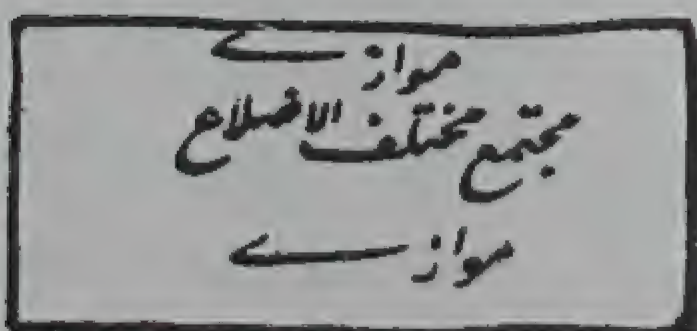 موازے
مجتمع مختلف الاضلاع
موازے